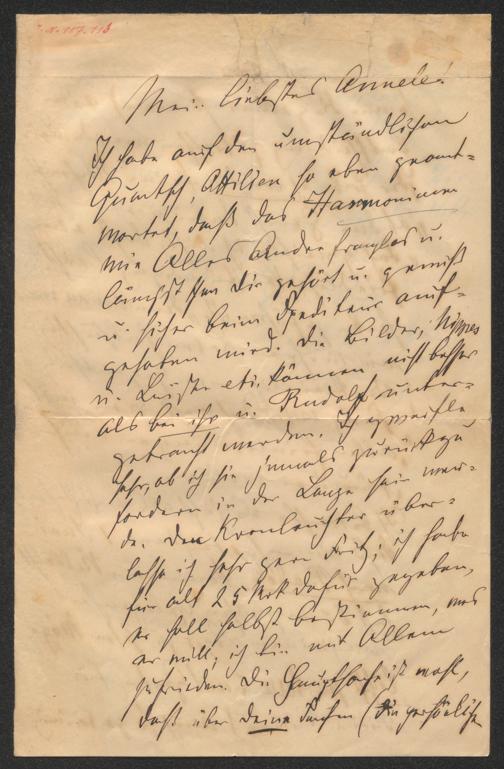 I. N. 117.113
Mein liebstes Annele!
Ich habe auf den umständlichen
Quatsch, Ottilien so eben geant-
wortet, daß das Harmonium
wie Alles Andre fraglos u.
längst schon Dir gehört u. gewiß
u. sicher beim Spediteur auf-
gehoben wird. Die Bilder, Nippes
u. Büste etc. können nicht besser
als bei ihr u. Rudolf unter-
gebracht werden. Ich zweifle
sehr, ob ich sie jemals zurückzu
fordern in der Lage sein wer-
de. Den Kronleuchter über-
lasse ich sehr gern Fritz; ich habe
für alt 25 Mrk dafür gegeben,
er soll selbst bestimmen, was
er will; ich bin mit Allem
zufrieden. Die Hauptsache ist wohl,
daß über deine Sachen (Din persönlich